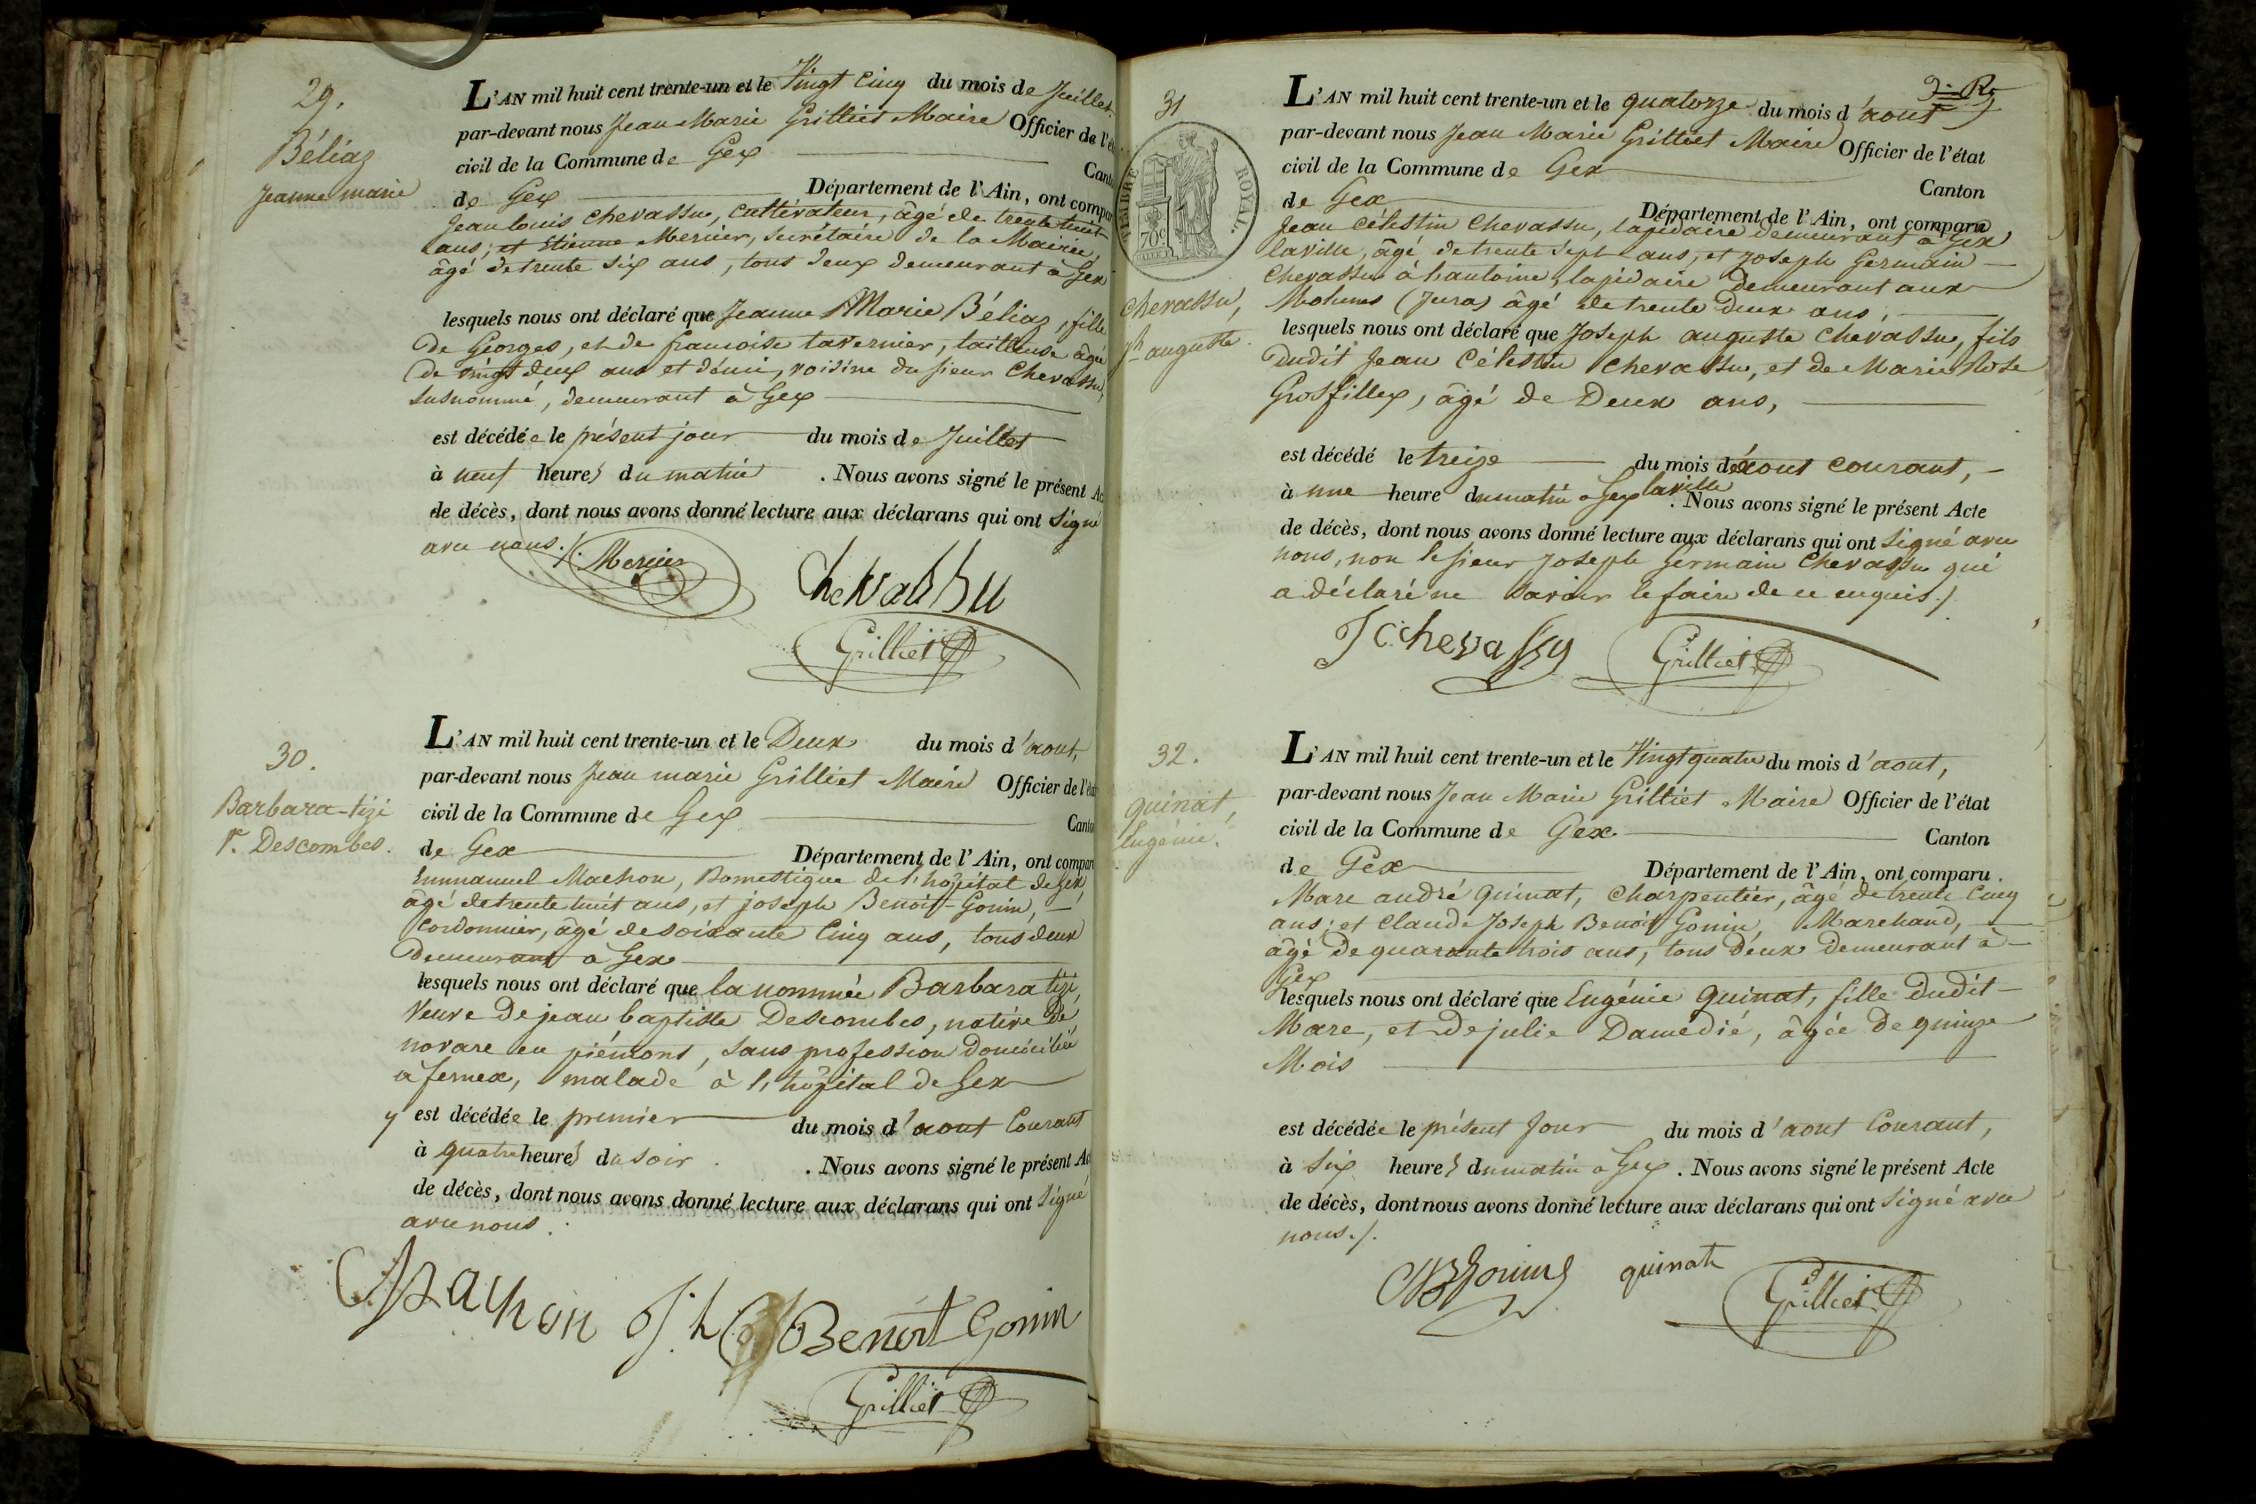 29.
Béliaz
Jeanne marie
L'AN mil huit cent trente-un et le Vingt Cinq du mois de Juillet,
par-devant nous Jean Marie Grilliet Maire Officier de l'ét
civil de la Commune de Gex Canto
de Gex Département de l'Ain, ont compar
Jean Louis Chevassu, Cultivateur, âgé de trente huit
ans; et Etienne Mercier, secrétaire de la Mairie,
âgé de trente six ans, tous deux demeurant à Gex
lesquels nous ont déclaré que Jeanne Marie Béliaz, fille
de Georges, et de françoise tavernier, tailleuse âgée
de vingt deux ans et demi, voisine du sieur Chevassu,
susnommé, demeurant à Gex
est décédée le présent jour du mois de Juillet
à neuf heures du matin . Nous avons signé le présent Ac
de décès, dont nous avons donné lecture aux déclarans qui ont signé
avec nous./.
Mercier
Chevassu
Grilliet
30.
Barbara-tizi
Ve. Descombes.
L'AN mil huit cent trente-un et le Deux du mois d'aout,
par-devant nous Jean marie Grilliet Maire Officier de l'état
civil de la Commune de Gex Canton
de Gex Département de l'Ain, ont compar
Emmanuel Machon, Domestique de l'hôpital de Gex,
âgé de trente huit ans, et joseph Benoit-Gonin,
Cordonnier, âgé de soixante Cinq ans, tous deux
Demeurant à Gex
lesquels nous ont déclaré que la nommée Barbara tizi,
Veuve De jean baptiste Descombes, native de
novare en piémont, sans profession domiciliée
à fernex, malade à l'hôpital de Gex
y est décédée le premier du mois d'aout Courant
à quatre heures du soir . Nous avons signé le présent Ac
de décès, dont nous avons donné lecture aux déclarans qui ont signé
avec nous.
Machon
Benoit Gonin
Grilliet
31
TIMBRE ROYAL.
70c
chevassu,
Jh auguste.
L'AN mil huit cent trente-un et le quatorze du mois d'aout
par-devant nous Jean Marie Grilliet Maire Officier de l'état
civil de la Commune de Gex Canton
de Gex Département de l'Ain, ont comparu
Jean Célestin Chevassu, lapidaire demeurant à Gex
laville, âgé de trente sept ans, et Joseph Germain
Chevassu à l'antoine, lapidaire demeurant aux
Molunes (Jura) âgé de trente deux ans,
lesquels nous ont déclaré que Joseph auguste Chevassu, fils
dudit Jean Célestin Chevassu, et de Marie Rose
Grosfillex, âgé de Deux ans,
est décédé le treize du mois d'aout courant,
à une heure du matin à Gex laville . Nous avons signé le présent Acte
de décès, dont nous avons donné lecture aux déclarans qui ont signé avec
nous, non le sieur Joseph Germain Chevassu qui
a déclaré ne savoir le faire de ce enquis./.
J C chevassu
Grilliet
32.
quinat,
Eugénie.
L'AN mil huit cent trente-un et le Vingt quatre du mois d'aout,
par-devant nous Jean Marie Grilliet Maire Officier de l'état
civil de la Commune de Gex Canton
de Gex Département de l'Ain, ont comparu.
Marc andré Quinat, Charpentier, âgé de trente Cinq
ans; et Claude Joseph Benoit Gonin, Marchand,
âgé de quarante trois ans, tous deux demeurant à
Gex
lesquels nous ont déclaré que Eugénie Quinat, fille dudit
Marc, et de julie Damédié, âgée de quinze
Mois
est décédée le présent Jour du mois d'aout Courant,
à six heures du matin à Gex . Nous avons signé le présent Acte
de décès, dont nous avons donné lecture aux déclarans qui ont signé avec
nous./.
quinat
Grilliet